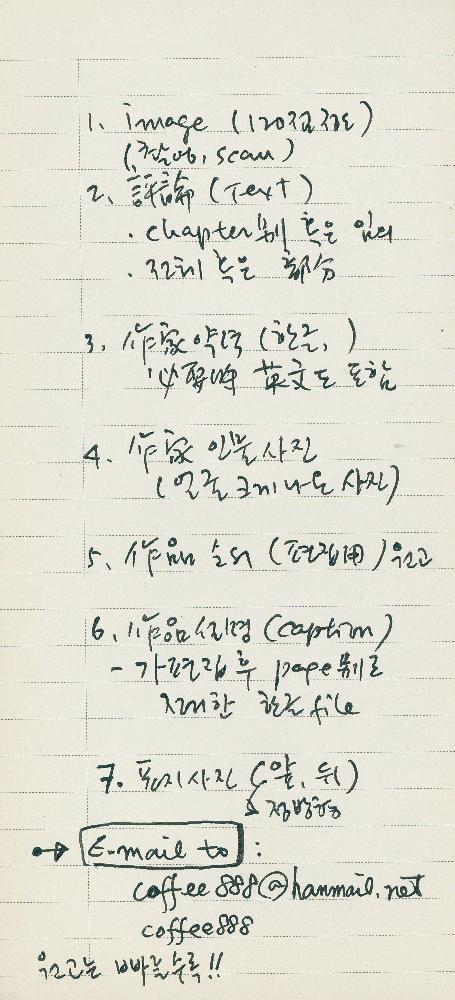 1. image (120점 정도)
(촬영, scan)
2. 評論 (Text)
· chapter別 혹은 임의
· 전체 혹은 部分
3. 作家 약력 (한글, )
必要時 英文도 포함
4. 作家 인물사진
(얼굴 크게 나온 사진)
5. 作品 순서 (편집用) 원고
6. 作品설명 (caption)
- 가편집 후 page別로
한글 file
7. 표지사진 (앞, 뒤)
E-mail to :
coffee888@hanmail.net
coffee888
원고는 빠를수록!!